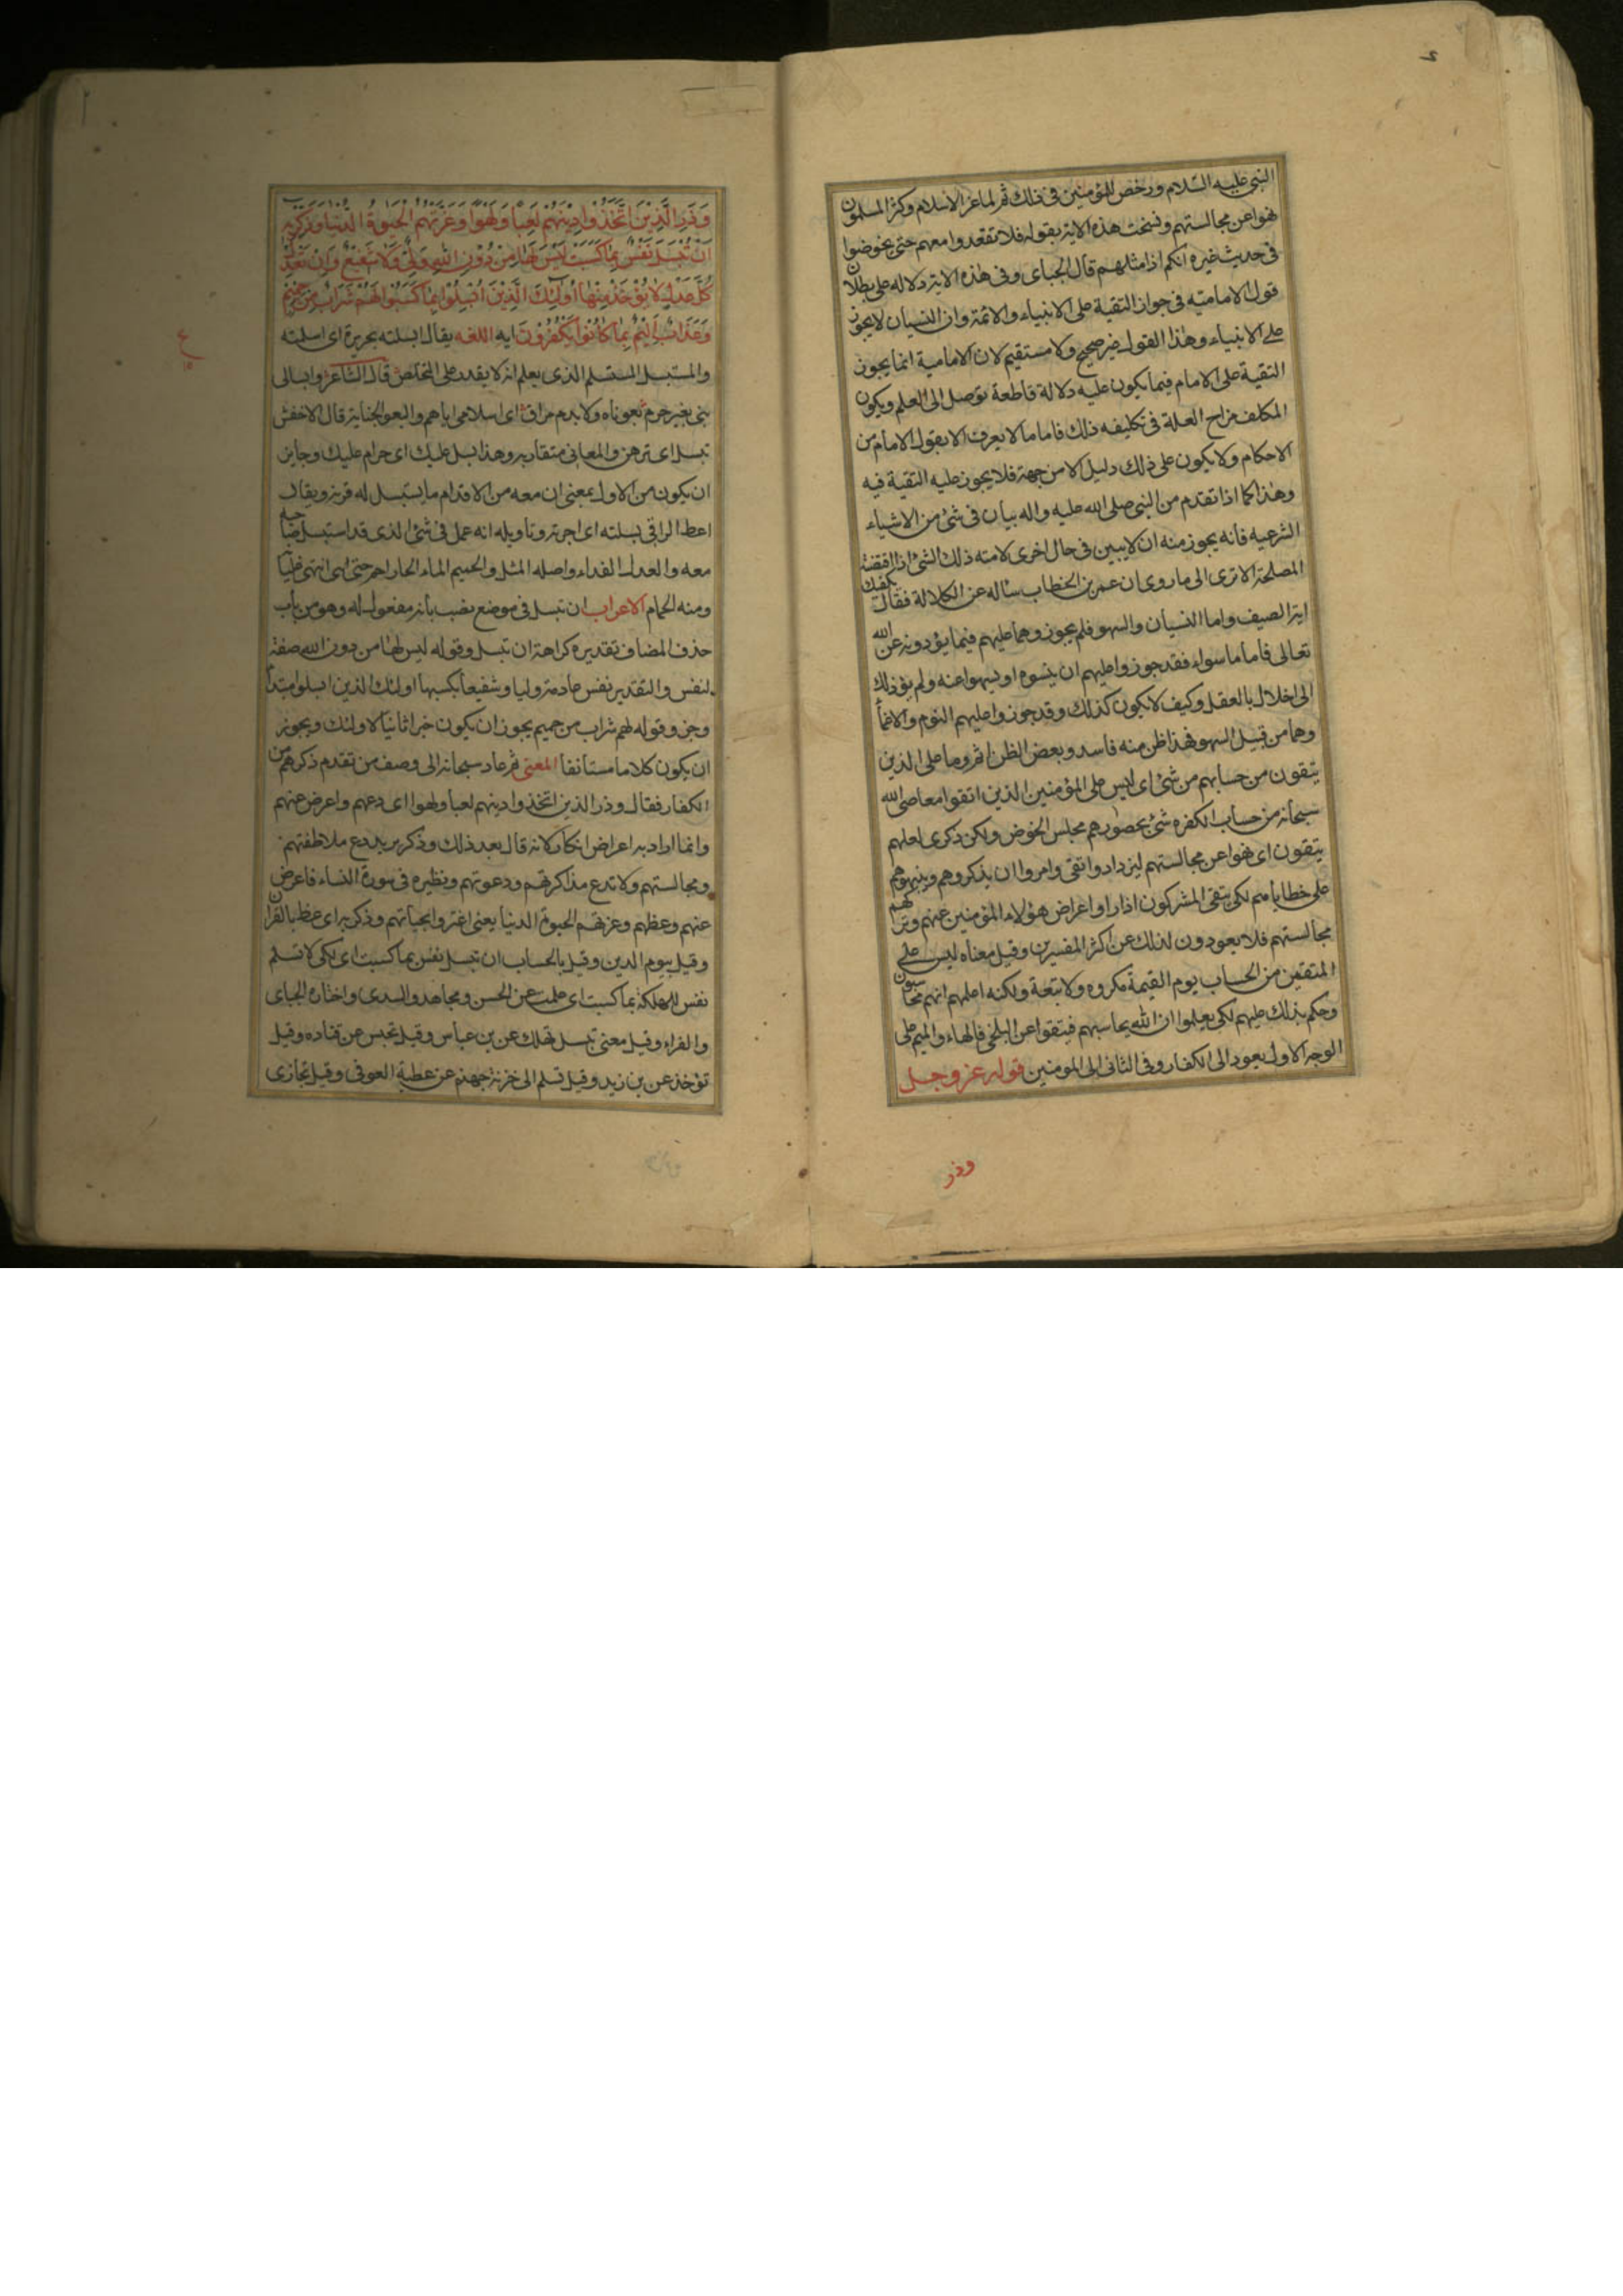 النبي عليه السلام ورخص للمؤمنين في ذلك ثم لما عز الاسلام وكثر المسلمون
نهوا عن مجالستهم ونسخت هذه الاية بقوله فلا تقعدوا معهم حتى يخوضوا
في حديث غيره انكم اذا مثلهم قال الجباى وفى هذه الاية دلاله على بطلان
قول الامامية في جواز التقية على الانبياء والائمة وان النسيان لا يجوز
على الانبياء وهذا القول غير صحيح ولا مستقيم لان الامامية انما يجوز
التقية على الامام فيما يكون عليه دلالة قاطعة توصل الى العلم ويكون
المكلف مزاح العلة في تكليفه ذلك فاما ما لا يعرف الا بقول الامام من
الاحكام ولا يكون على ذلك دليل الا من جهته فلا يجوز عليه التقية فيه
وهذا كما اذا تقدم من النبي صلى الله عليه واله بيان في شئ من الاشياء
الشرعيه فانه يجوز منه ان لا يبين في حال اخرى لامته ذلك الشئ اذا اقتضته
المصلحة الا ترى الى ما روى ان عمر بن الخطاب سأله عن الكلالة فقال يكفيك
اية الصيف واما النسيان والسهو فلم يجوزوهما عليهم فيما يؤدونه عن الله
تعالى فاما ما سواه فقد جوزوا عليهم ان ينسوه او يسهوا عنه ولم يؤد ذلك
الى اخلال بالعقل وكيف لا يكون كذلك وقد جوزوا عليهم النوم والاغماء
وهما من قبيل السهو فهذا ظن منه فاسد وبعض الظن اثم وما على الذين
يتقون من حسابهم من شئ اى ليس على المؤمنين الذين اتقوا معاصى الله
سبحانه من حساب الكفره شئ بحضورهم مجلس الخوض ولكن ذكرى لعلهم
يتقون اى نهوا عن مجالستهم ليزدادوا تقى وامروا ان يذكروهم وينبهوهم
على خطاياهم لكى يتقى المشركون اذا راوا اعراض هؤلاء المؤمنين عنهم وتركهم
مجالستهم فلا يعودون لذلك عن اكثر المفسرين وقيل معناه ليس على
المتقين من الحساب يوم القيمة مكروه ولا تبعة ولكنه اعلمهم انهم محاسبون
وحكم بذلك عليهم لكى يعلموا ان الله يحاسبهم فيتقوا عن البلخى فالهاء والميم على
الوجه الاول يعود الى الكفار وفى الثانى الى المومنين قوله عز وجل
وذر
وَذَرِ الَّذِينَ اتَّخَذُوا دِينَهُمْ لَعِبًا وَلَهْوًا وَغَرَّتْهُمُ الْحَيٰوةُ الدُّنْيَا وَذَكِّرْ بِهِ
اَنْ تُبْسَلَ نَفْسٌ بِمَا كَسَبَتْ لَيْسَ لَهَا مِنْ دُونِ اللهِ وَلِيٌّ وَلَا شَفِيعٌ وَاِنْ تَعْدِلْ
كُلَّ عَدْلٍ لَا يُؤْخَذْ مِنْهَا اُولٰئِكَ الَّذِينَ اُبْسِلُوا بِمَا كَسَبُوا لَهُمْ شَرَابٌ مِنْ حَمِيمٍ
وَعَذَابٌ اَلِيمٌ بِمَا كَانُوا يَكْفُرُونَ ايه اللغه يقال ابسلته بجريرة اى اسلمته
والمستبسل المستسلم الذى يعلم انه لا يقدر على التخلص قال الشاعر وابسالى
بنى بغير جرم بعوناه ولا بدم مراق اى اسلامى اياهم والبعو الجناية قال الاخفش
تبسل اى ترهن والمعانى متقاربه وهذا بسل عليك اى حرام عليك وجايز
ان يكون من الاول بمعنى ان معه من الاقدام ما يستبسل له قرنه ويقال
اعط الراقى بسلته اى اجرته وتاويله انه عمل في شئ الذى قد استبسل صاحبه
معه والعدل الفداء واصله المثل والحميم الماء الحار احم حتى انتهى غليانه
ومنه الحمام الاعراب ان تبسل فى موضع نصب بانه مفعول له وهو من باب
حذف المضاف تقديره كراهة ان تبسل وقوله ليس لها من دون الله صفة
لنفس والتقدير نفس عادمة وليا وشفيعا بكسبها اولئك الذين ابسلوا مبتدأ
وخبر وقوله لهم شراب من حميم يجوز ان يكون خبرا ثانيا لاولئك ويجوز
ان يكون كلاما مستانفا المعنى ثم عاد سبحانه الى وصف من تقدم ذكرهم من
الكفار فقال وذر الذين اتخذوا دينهم لعبا ولهوا اى دعهم واعرض عنهم
وانما اراد به اعراض انكار لانه قال بعد ذلك وذكر به يريد دع ملاطفتهم
ومجالستهم ولا تدع مذاكرتهم ودعوتهم ونظيره فى سورة النساء فاعرض
عنهم وعظهم وغرتهم الحيوة الدنيا يعنى اغتروا بحياتهم وذكر به اى عظ بالقران
وقيل بيوم الدين وقيل بالحساب ان تبسل نفس بما كسبت اى لكى لا تسلم
نفس للهلكة بما كسبت اى عملت عن الحسن ومجاهد والسدى واختاره الجباى
والفراء وقيل معنى تبسل تهلك عن بن عباس وقيل تحبس عن قتاده وقيل
تؤخذ عن بن زيد وقيل تسلم الى خزنة جهنم عن عطية العوفى وقيل تجازى